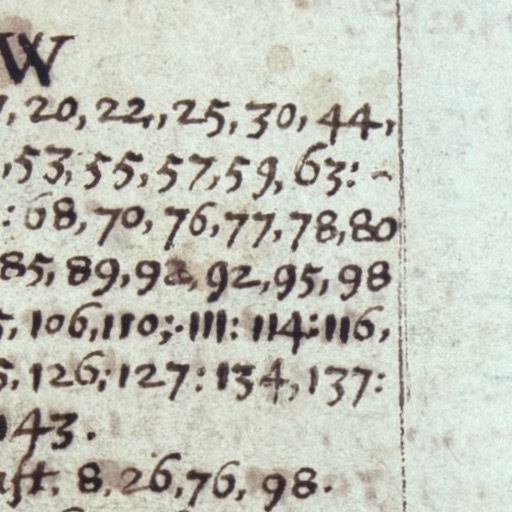 W
, 20, 22,, 25, 30, 44,
, 53, 55, 57, 59, 63: -
: 68, 70, 76, 77, 78, 80
85, 89, 92, 92, 95, 98
, 106, 110;. 111: 114: 116,
. 126; 127: 134, 137:
143.
8, 26, 76, 98.